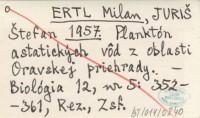 ERTL Milan, JURIŠ
Štefan 1957. Planktón
astatických vôd z oblasti
Oravskej priehrady. —
Biológia 12, nr 5: 353—
—361, Rez., Zsf.